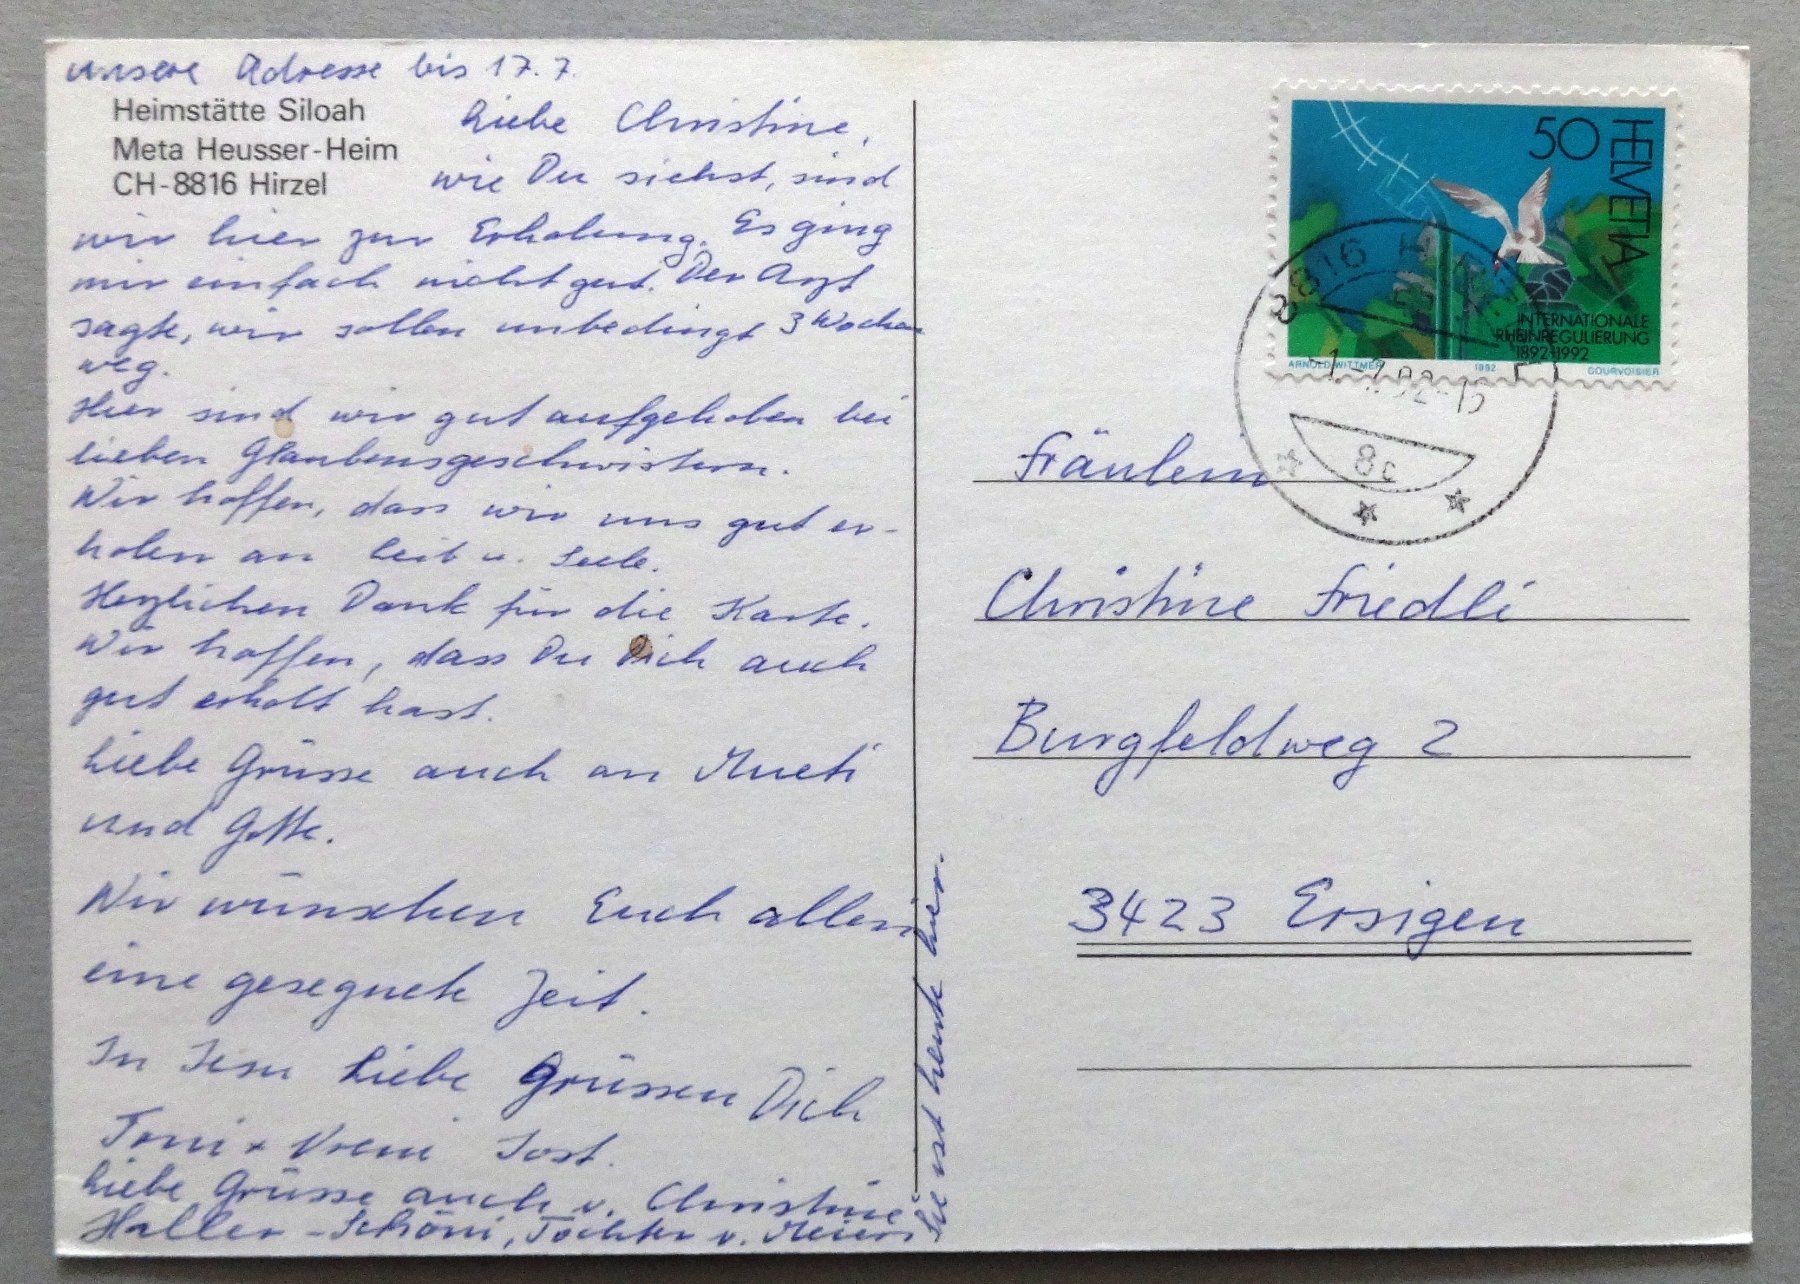 unsere Adresse bis 17.7.
Heimstätte Siloah
Meta Heusser-Heim
CH-8816 Hirzel
Liebe Christine,
wie Du siehst, sind
wir hier zur Erholung. Es ging
mir einfach nicht gut. Der Arzt
sagte, wir sollen unbedingt 3 Wochen
weg.
Hier sind wir gut aufgehoben bei
lieben Glaubensgeschwistern.
Wir hoffen, dass wir uns gut er-
holen an Leib u. Seele.
Herzlichen Dank für die Karte.
Wir hoffen, dass Du Dich auch
gut erholt hast.
Liebe Grüsse auch an Mueti
und Gotte.
Wir wünschen Euch allen
eine gesegnete Zeit.
In Jesu Liebe grüssen Dich
Toni + Vreni Jost.
Liebe Grüsse auch v. Christine
Haller-Schöni, Tochter v. Meieri
Sie ist heute hier.
HELVETIA
50
INTERNATIONALE
RHEINREGULIERUNG
1892-1992
ARNOLD WITTMER
1992
COURVOISIER
8816
Fräulein
Christine Friedli
Burgfeldweg 2
3423 Ersigen